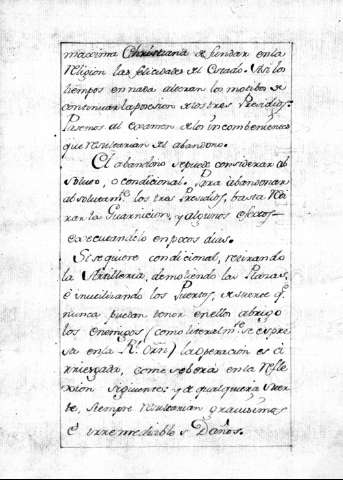 maxima Christiana de fundar en la
religion las felicidades del Estado. Asi los
tiempos en nada alteran los motibos de
continuar la posesion de los tres Presidios:
Pasemos al examen de los incombenientes
que resultarian del abandono.
El abandono se puede considerar ab
soluto, o condicional. Para abandonar
absolutamte. los tres Presidios, basta reti
rar la Guarnicion, y algunos efectos
executandolo en pocos dias.
Si se quiere condicional, retirando
la Artilleria, demoliendo las Plazas,
é inutilizando los Puertos, de suerte qe.
nunca puedan tener en ellos abrigo
los enemigos (como literalmte. se expre
sa en la Rl. Orn) la operacion es a
rriesgada, como se verá en la refle
xion siguiente: y de qualquiera suer
te, siempre resultarian gravisimos
é irremediables Daños.